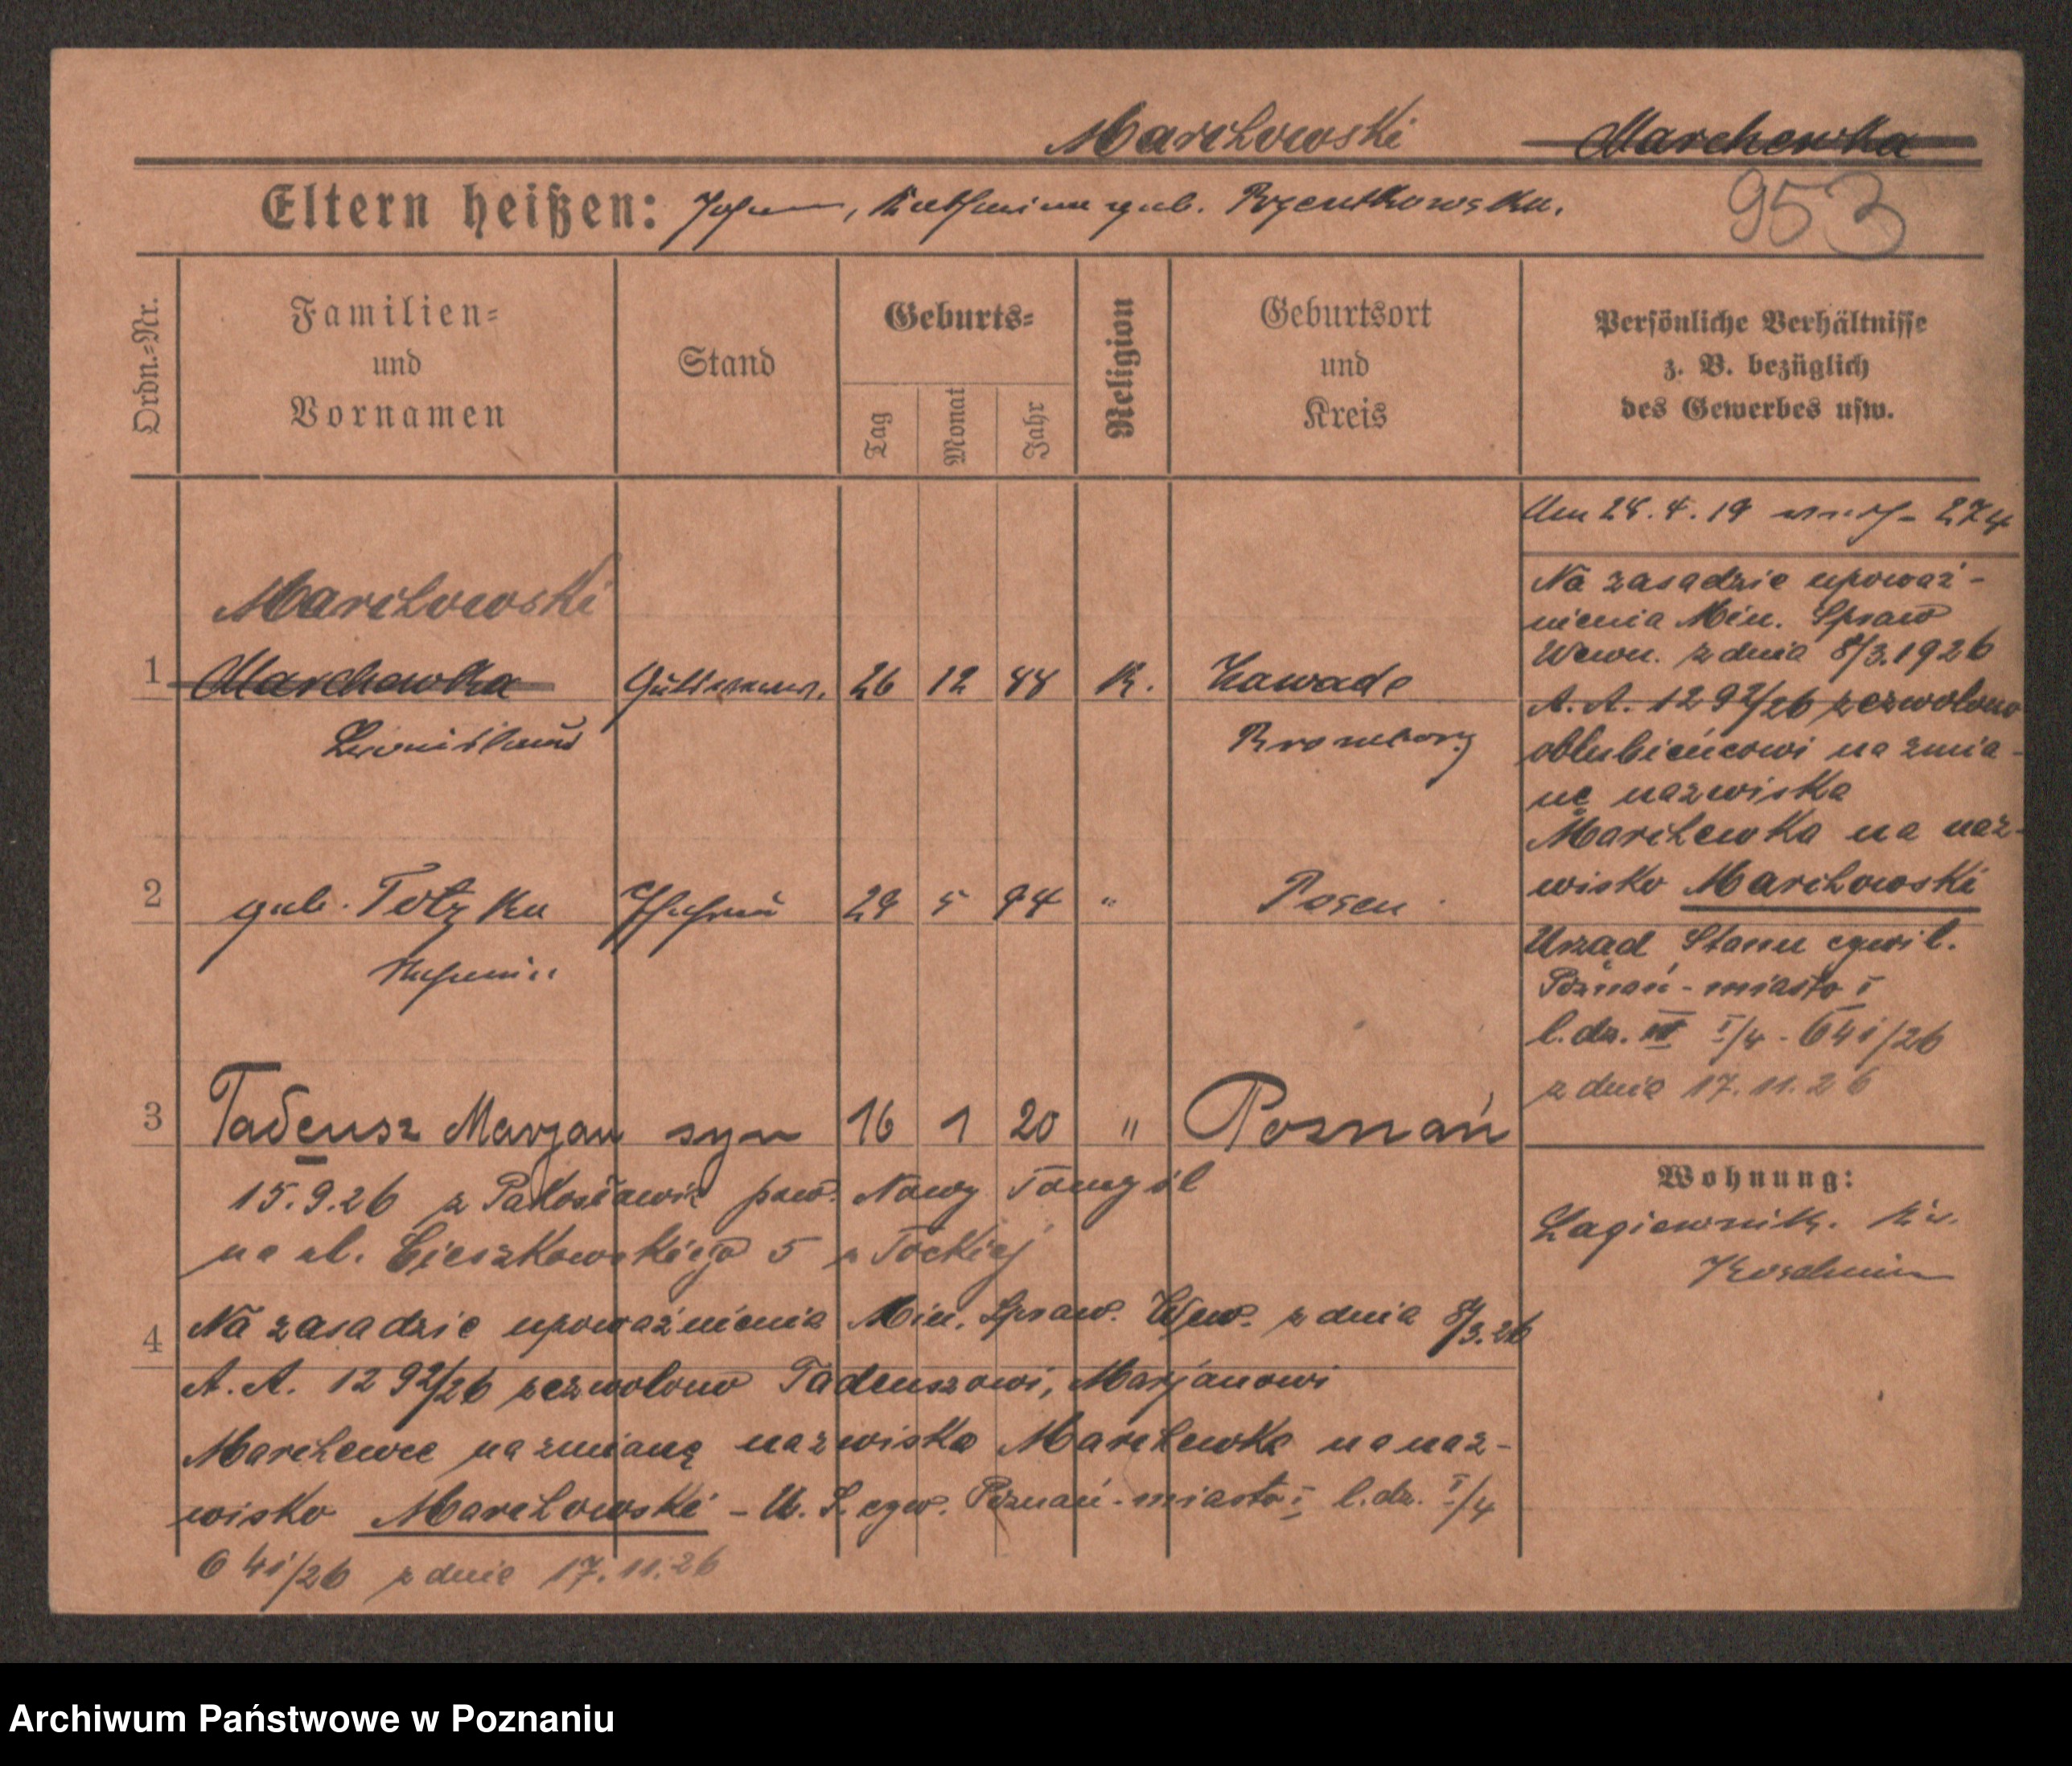 Marchowski Marchewka
Eltern heißen: Johann, Katharina geb. Rzentkowska.
953
Ordn.=Nr.
Familien=
und
Vornamen
Stand
Geburts=
Tag
Monat
Jahr
Religion
Geburtsort
und
Kreis
Persönliche Verhältnisse
z. B. bezüglich
des Gewerbes usw.
Marchowski
1 Marchewka 26 12 88 K. Zawade
Bronislaus Bromberg
2 geb. Totzka Ehefrau 29 5 94 " Posen
3 Tadeusz Marjan syn 16 1 20 " Poznań
15.9.26 z Pakosławic pow. Nowy Tomyśl
na ul. Cieszkowskiego 5 z Tockiej
4 Na zasadzie upoważnienia Min. Spraw. Wew. z dnia 8/3.26
A. A. 1292/26 zezwolono Tadeuszowi, Marjanowi
Marchewce na zmianę nazwiska Marchewka na naz-
wisko Marchowski - U. S. cyw. Poznań-miasto I l.dz. I/4
641/26 z dnia 17.11.26
Am 4.19 274
Na zasadzie upoważ-
nienia Min. Spraw
Wewn. z dnia 8/3.1926
A. A. 1292/26 zezwolono
oblubieńcowi na zmia-
nę nazwiska
Marchewka na naz-
wisko Marchowski
Urząd Stanu cywil.
Poznań-miasto I
l.dz. I/4 - 641/26
z dnia 17.11.26
Wohnung:
Lagiewnik. Kr.
Koschmin
Archiwum Państwowe w Poznaniu